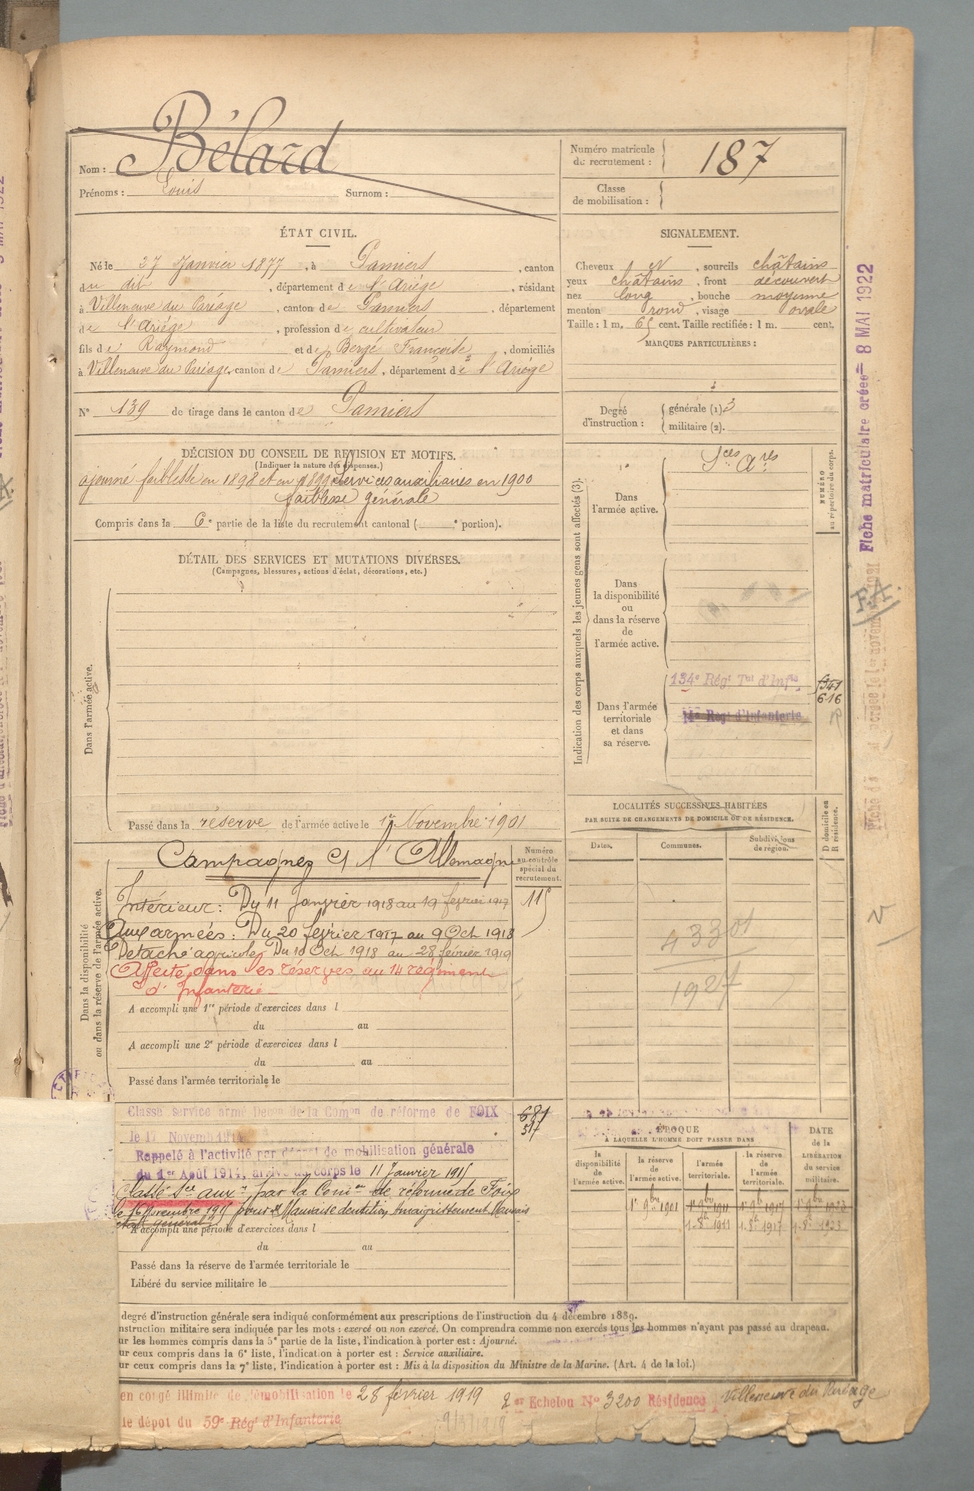 Nom : Bélard
Prénoms : Louis Surnom :
Numéro matricule du recrutement : 187
Classe de mobilisation :
ÉTAT CIVIL.
Né le 27 Janvier 1877, à Pamiers, canton
du dit, département de l'Ariège, résidant
à Villeneuve du Paréage, canton de Pamiers, département
de l'Ariège, profession de cultivateur
fils de Raymond et de Bergé Françoise, domiciliés
à Villeneuve du Paréage, canton de Pamiers, département de l'Ariège
N° 139 de tirage dans le canton de Pamiers
SIGNALEMENT.
Cheveux N, sourcils châtains
yeux châtains, front découvert
nez long, bouche moyenne
menton rond, visage ovale
Taille : 1 m. 65 cent. Taille rectifiée : 1 m. cent.
MARQUES PARTICULIÈRES :
Degré d'instruction : générale (1). 3
militaire (2).
DÉCISION DU CONSEIL DE RÉVISION ET MOTIFS.
(Indiquer la nature des dispenses.)
ajourné faiblesse en 1898 et en 1899 Services auxiliaires en 1900
faiblesse générale
Compris dans la 6e partie de la liste du recrutement cantonal ( e portion).
DÉTAIL DES SERVICES ET MUTATIONS DIVERSES.
(Campagnes, blessures, actions d'éclat, décorations, etc.)
Dans l'armée active.
Passé dans la réserve de l'armée active le 1er Novembre 1901
Indication des corps auxquels les jeunes gens sont affectés (3).
NUMÉRO au répertoire du corps.
Sces Ares
Dans l'armée active.
Dans la disponibilité ou dans la réserve de l'armée active.
134e Régt Tal d'Infie
Dans l'armée territoriale et dans sa réserve.
Régt d'Infanterie
616
LOCALITÉS SUCCESSIVES HABITÉES
PAR SUITE DE CHANGEMENTS DE DOMICILE OU DE RÉSIDENCE.
Dates. Communes. Subdivisions de région. D domicile ou R résidence.
1927
Dans la disponibilité ou dans la réserve de l'armée active.
Campagnes C/ l'Allemagne
Numéro au contrôle spécial du recrutement.
Intérieur : Du 11 Janvier 1918 au 19 février 1917
Aux armées : Du 20 février 1917 au 9 Oct 1918
Détaché agricole Du 10 Oct 1918 au 28 février 1919
Affecté dans les réserves au 14 régiment
d'Infanterie
A accompli une 1re période d'exercices dans l
du au
A accompli une 2e période d'exercices dans l
du au
Passé dans l'armée territoriale le
Classé service armé Déson de la Comon de réforme de FOIX
le 17 Novemb 1914
Rappelé à l'activité par décret de mobilisation générale
du 1er Août 1914, arrivé au corps le 11 Janvier 1915
Classé Sce aux. par la Comon de réforme de Foix
le 16 Novembre 1915 pour Mauvaise dentition Amaigrissement Mauvais
état général
A accompli une période d'exercices dans l
du au
Passé dans la réserve de l'armée territoriale le
Libéré du service militaire le
ÉPOQUE
À LAQUELLE L'HOMME DOIT PASSER DANS
la disponibilité de l'armée active. la réserve de l'armée active. l'armée territoriale. la réserve de l'armée territoriale. DATE de la LIBÉRATION du service militaire.
1er 9bre 1901 1er 9bre 1911 1er 9bre 1917 1er 9bre 1923
1.8bre 1911 1.8bre 1917 1.8bre 1923
degré d'instruction générale sera indiqué conformément aux prescriptions de l'instruction du 4 décembre 1889.
nstruction militaire sera indiquée par les mots : exercé ou non exercé. On comprendra comme non exercés tous les hommes n'ayant pas passé au drapeau.
ur les hommes compris dans la 5e partie de la liste, l'indication à porter est : Ajourné.
ur ceux compris dans la 6e liste, l'indication à porter est : Service auxiliaire.
ur ceux compris dans la 7e liste, l'indication à porter est : Mis à la disposition du Ministre de la Marine. (Art. 4 de la loi.)
en congé illimité de démobilisation le 28 février 1919 2er Echelon N° 3200 Résidence Villeneuve du Paréage
le dépôt du 59e Régt d'Infanterie
Fiche matriculaire créée 8 MAI 1922
F.A.